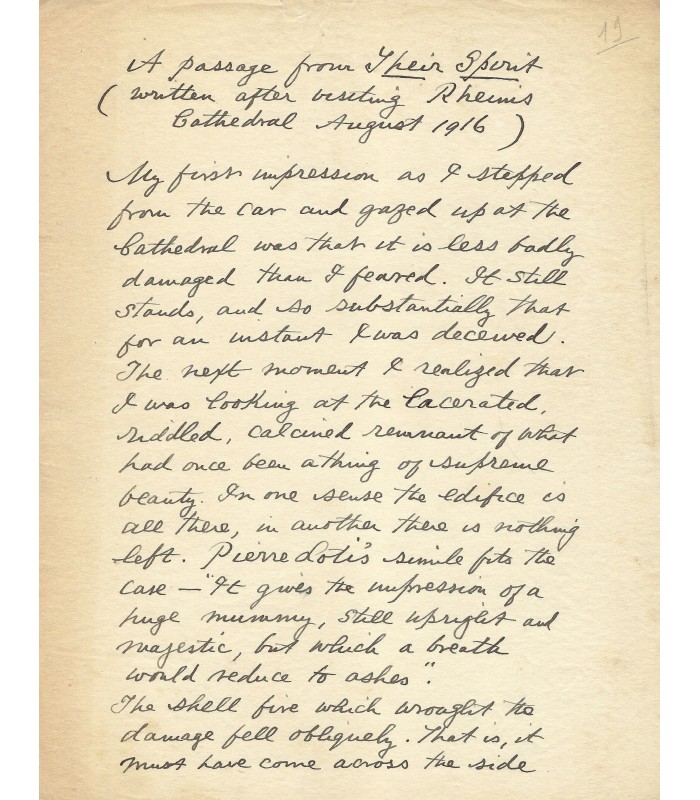 19
A passage from Their Spirit
(written after visiting Rheims
Cathedral August 1916)
My first impression as I stepped
from the car and gazed up at the
Cathedral was that it is less badly
damaged than I feared. It still
stands, and so substantially that
for an instant I was deceived.
The next moment I realized that
I was looking at the lacerated,
riddled, calcined remnant of what
had once been a thing of supreme
beauty. In one sense the edifice is
all there, in another there is nothing
left. Pierre Loti's simile fits the
case — "It gives the impression of a
huge mummy, still upright and
majestic, but which a breath
would reduce to ashes".
The shell fire which wrought the
damage fell obliquely. That is, it
must have come across the side